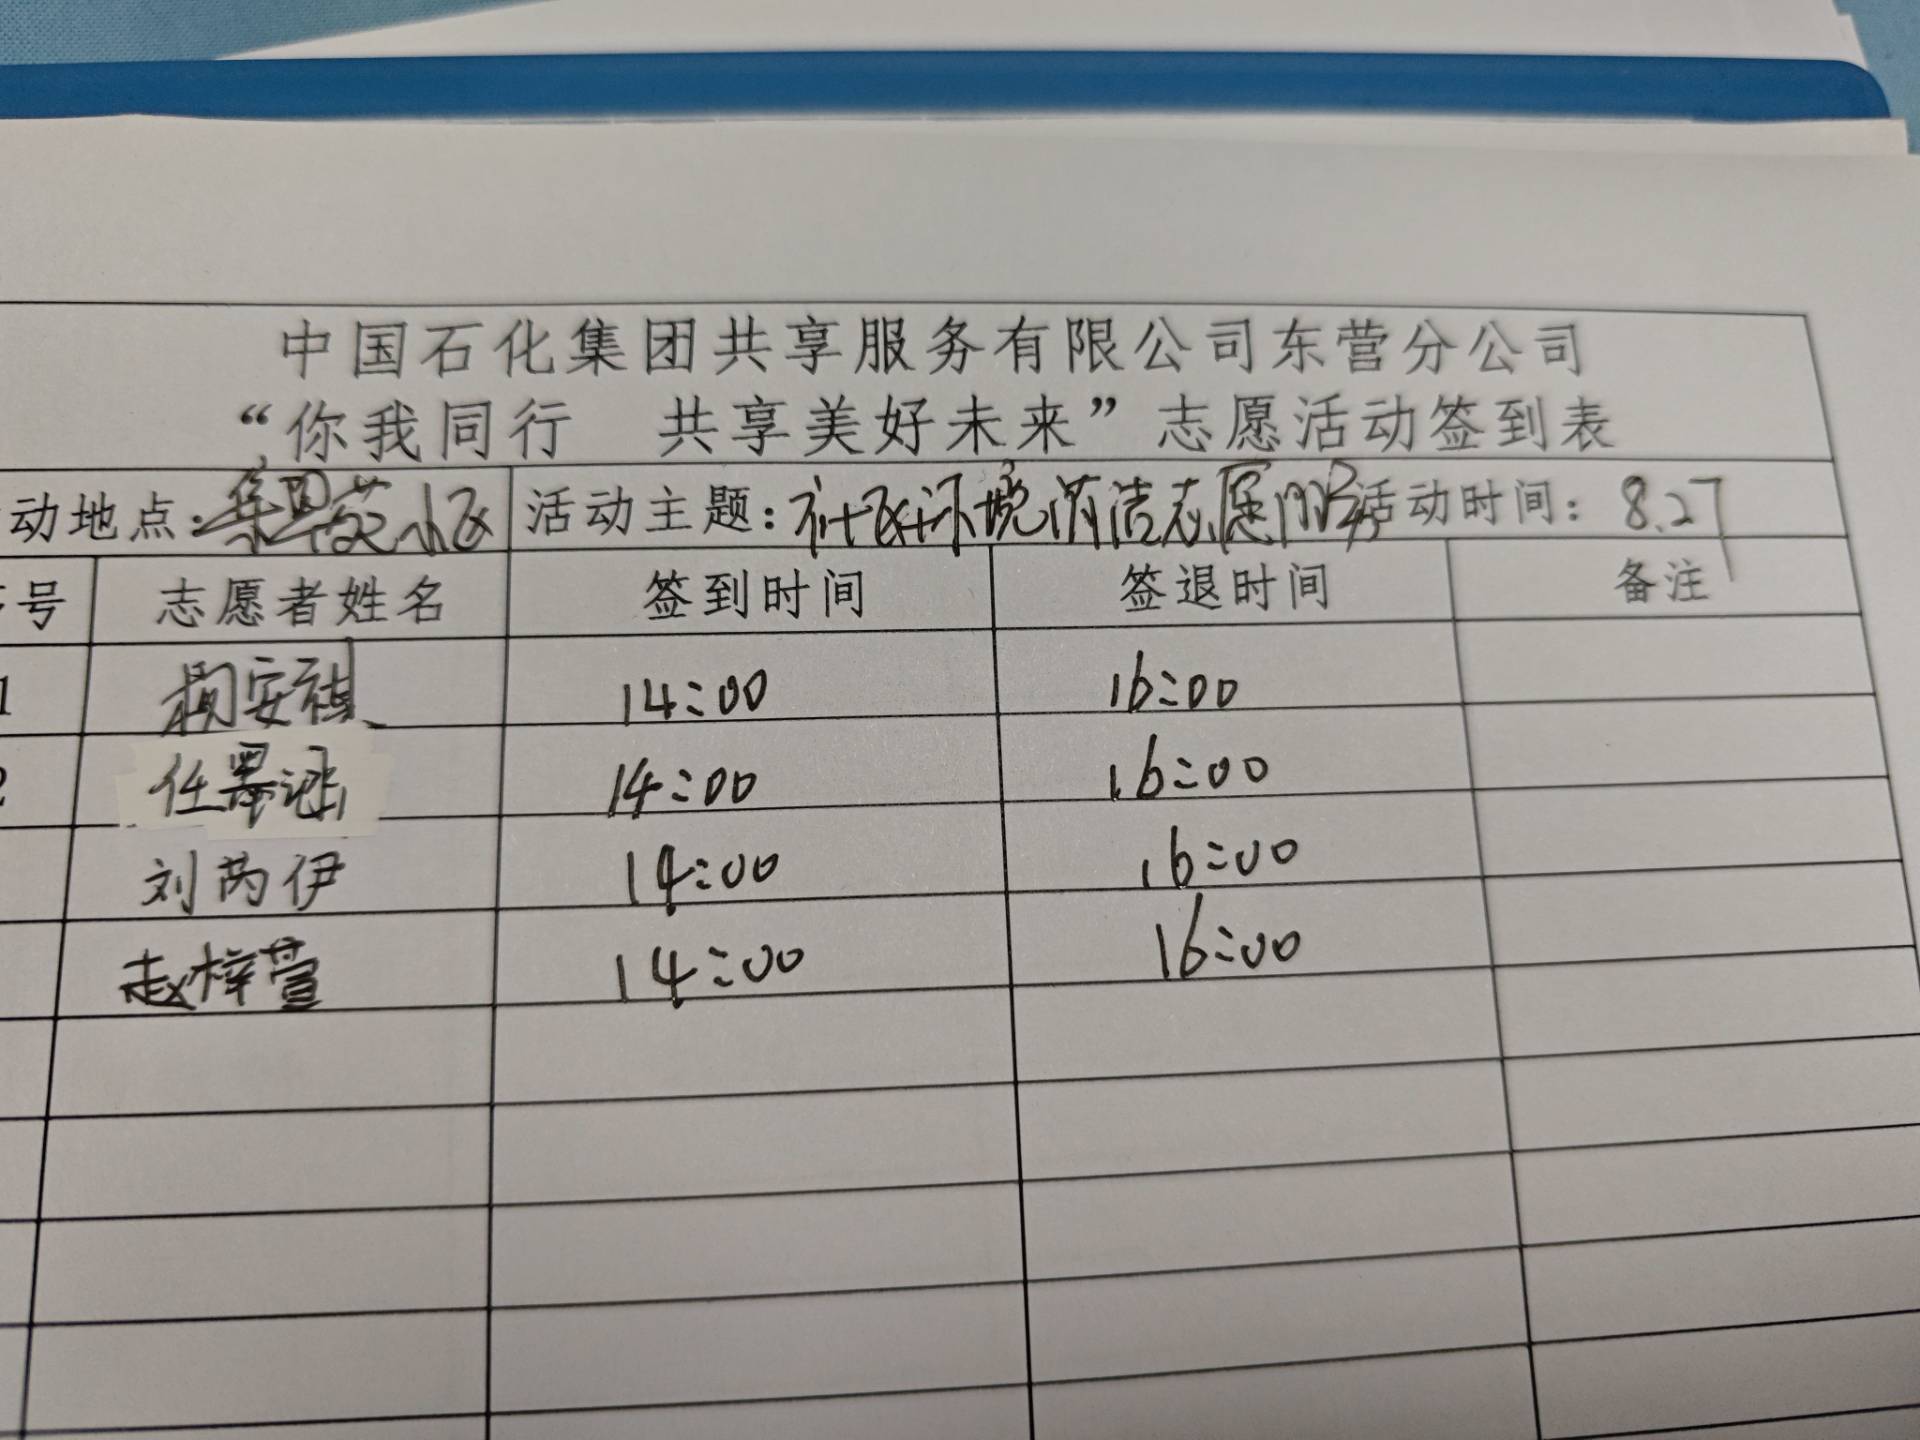 中国石化集团共享服务有限公司东营分公司
“你我同行 共享美好未来”志愿活动签到表
动地点: 小区 活动主题: 社区环境清洁志愿服务 活动时间: 8.27
号 志愿者姓名 签到时间 签退时间 备注
1 安祺 14:00 16:00
2 任墨涵 14:00 16:00
刘芮伊 14:00 16:00
赵梓萱 14:00 16:00